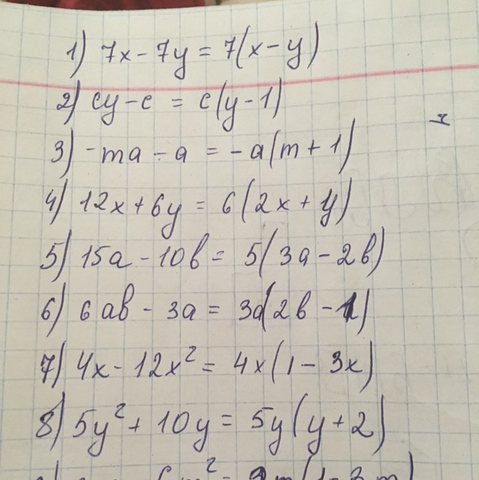 1) 7x - 7y = 7(x - y)
2) cy - c = c(y - 1)
3) -ma - a = -a(m + 1)
4) 12x + 6y = 6(2x + y)
5) 15a - 10b = 5(3a - 2b)
6) 6ab - 3a = 3a(2b - 1)
7) 4x - 12x² = 4x(1 - 3x)
8) 5y² + 10y = 5y(y + 2)